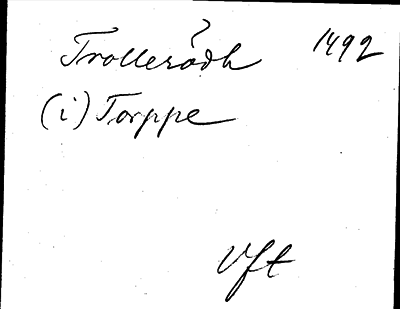 ?
Trolleródh 1492
(i) Torppe
Vft